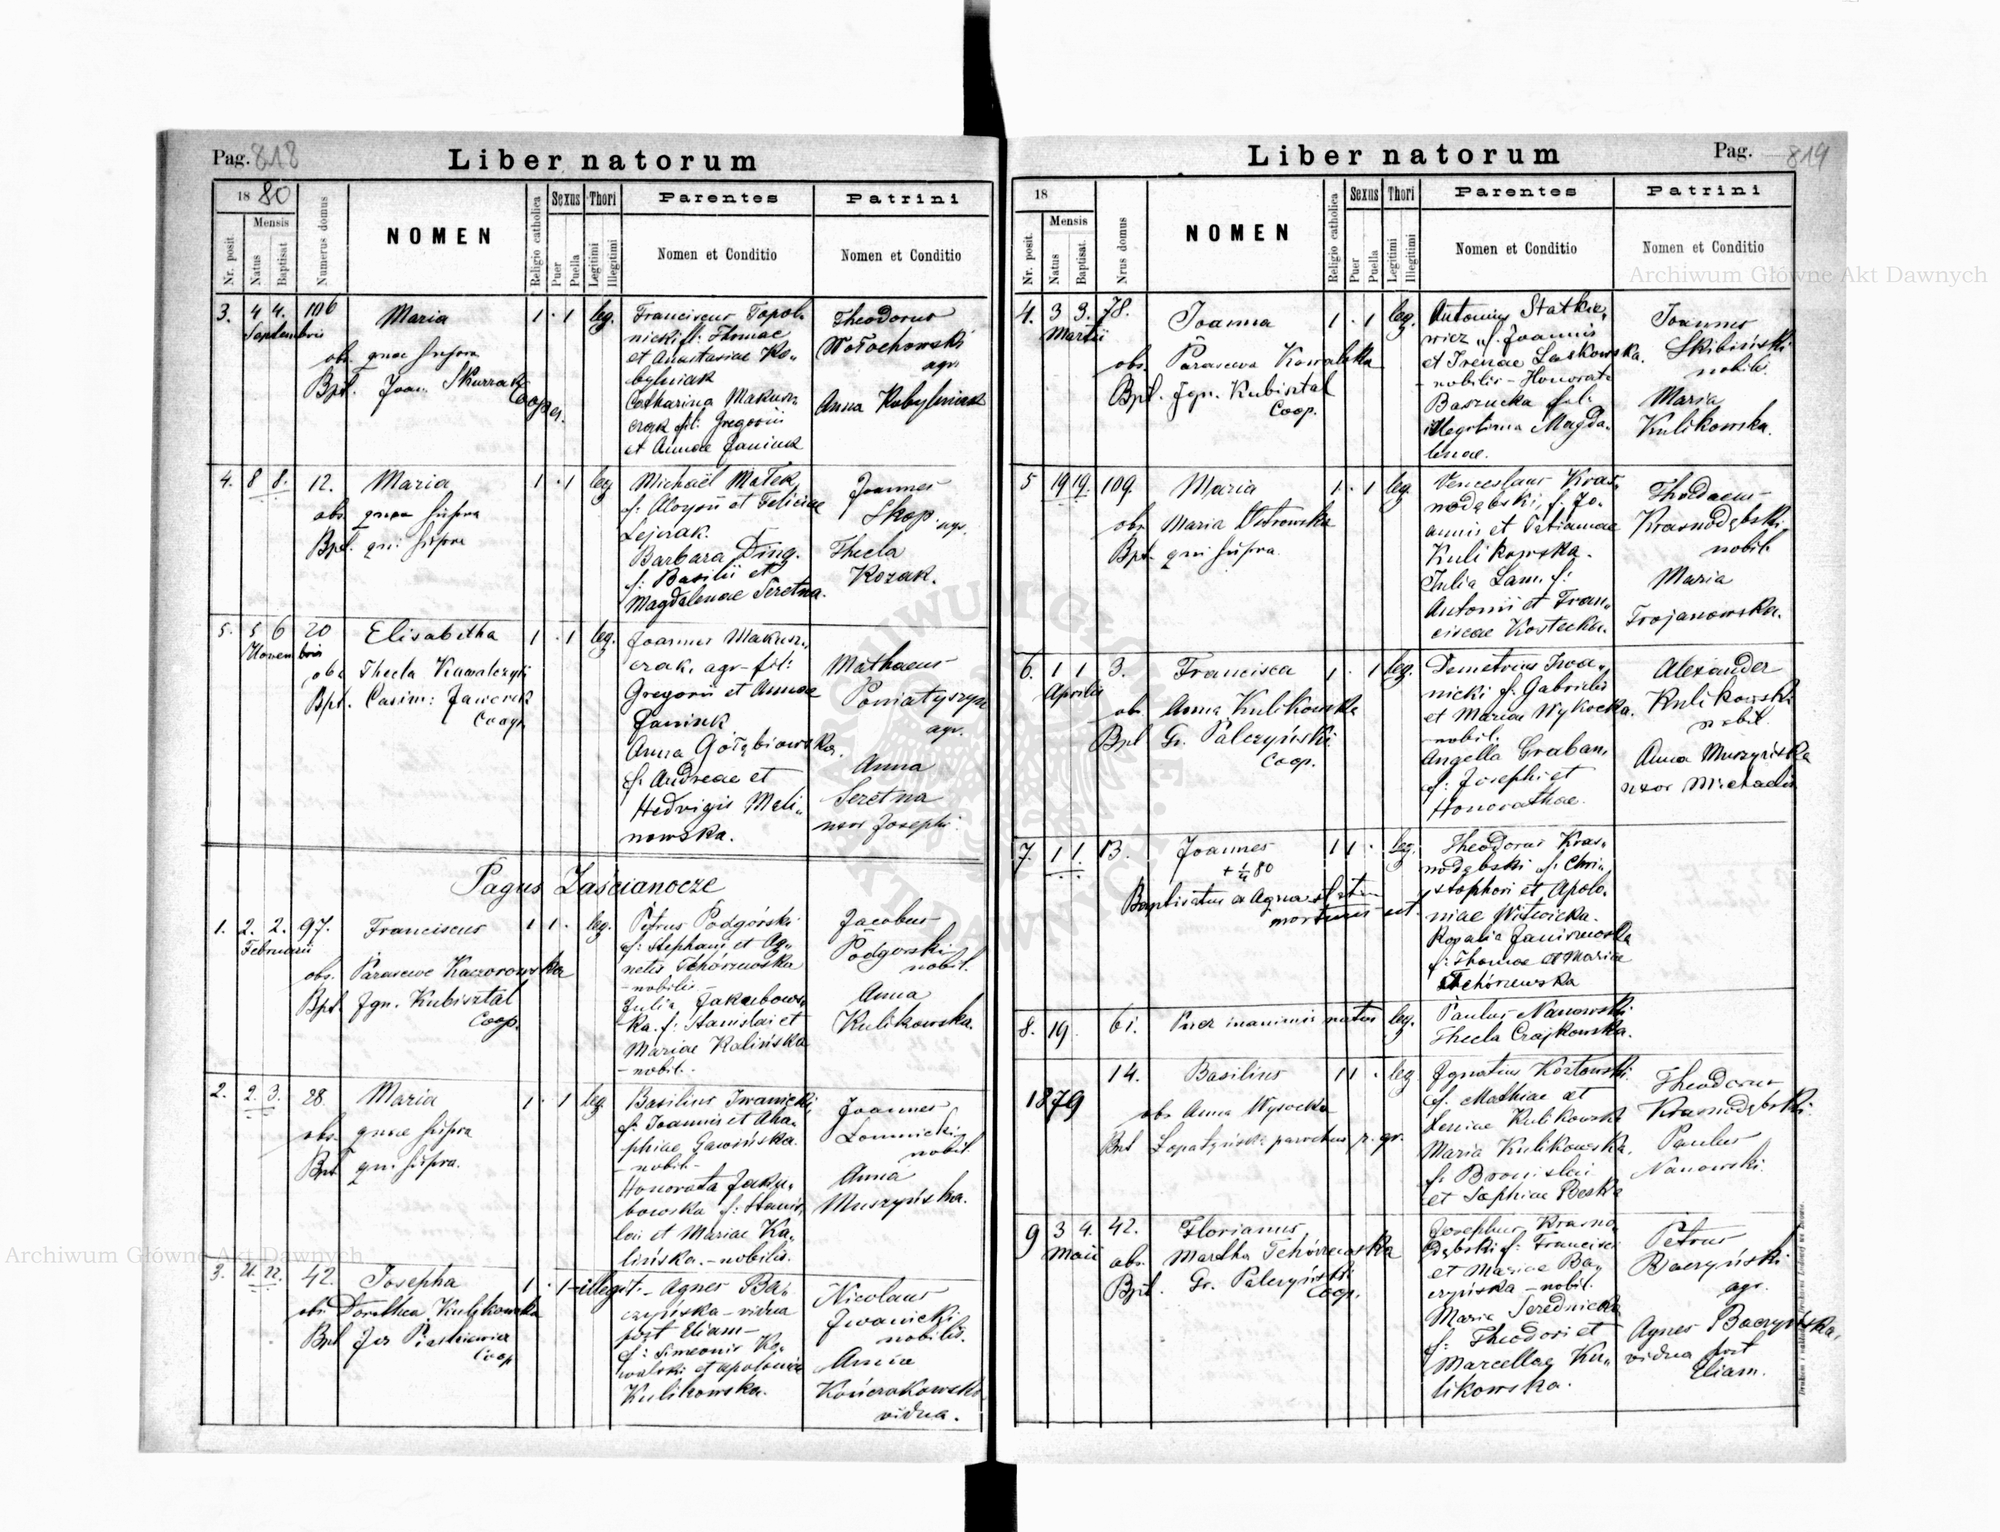 Pag. 818
Liber natorum
1880
Mensis
Nr. posit.
Natus
Baptisat.
Numerus domus
NOMEN
Religio catholica
Sexus
Puer
Puella
Thori
Legitimi
Illegitimi
Parentes
Nomen et Conditio
Patrini
Nomen et Conditio
3. 4 4. 106 Maria 1 . 1 leg.
Septembris
obs. quae supra
Bpt. Joan. Skurzak
Cooper.
Franciscus Topol-
nicki fil: Thomae
et Anastasiae Ko„
bylniak
Catharina Makusz„
czak fil: Gregorii
et Annae Janiuk
Theodorus
Wołochowski
agr.
Anna Kobylniak
4. 8 8. 12. Maria 1 . 1 leg
obs. quae supra
Bpt. qui supra
Michaël Małek,
f: Aloysii et Feliciae
Lejczak.
Barbara Ding.
f: Basilii et
Magdalenae Seretna.
Joannes
Skop. agr.
Thecla
Kozak.
5. 5 6 20 Elisabetha 1 . 1 leg.
Novembris
obs. Thecla Kawalczyk
Bpt. Casim: Jaworek
Coop.
Joannes Makusz„
czak, agr- fil:
Gregorii et Annae
Janiuk
Anna Gołębiowska,
f: Andreae et
Hedvigis Mali„
nowska.
Mathaeus
Poniatyszyn
agr.
Anna
Seretna
uxor Josephi.
Pagus Zaścianocze
1. 2. 2. 97. Franciscus 1 1 . leg.
Februarii
obs. Parasceve Kaczorowska
Bpt. Ign. Kubisztal
Coop.
Petrus Podgórski
f: Stephani et Ag„
netis Tchórzewska
-nobilis-
Julia Jakubows„
ka. f: Stanislai et
Mariae Kalińska
-nobil.-
Jacobus
Podgorski
nobil.
Anna
Kulikowska.
2. 2 3. 28 Maria 1 . 1 leg.
obs. quae supra
Bpt. qui supra.
Basilius Iwanicki,
f: Joannis et Aha„
phiae Gawińska.
-nobil-
Honorata Jaku„
bowska f: Stanis„
lai et Mariae Ka„
lińska.-nobilis.
Joannes
Łomnicki
nobil.
Anna
Muszyńska.
3. 21. 22. 42. Josepha 1 . 1 illegit.
obs. Dorothea Kulikowska
Bpt
Coop
- Agnes Ba„
czyńska - vidua
post Eliam -
f: Simeonis Ko„
walski et Apoloniae
Kulikowska.
Nicolaus
Iwanicki
nobilis.
Anna
Kończakowska
vidua.
Liber natorum
Pag. 819
18
Mensis
Nr. posit.
Natus
Baptisat.
Nrus domus
NOMEN
Religio catholica
Sexus
Puer
Puella
Thori
Legitimi
Illegitimi
Parentes
Nomen et Conditio
Patrini
Nomen et Conditio
4. 3 3. 78. Joanna 1 . 1 leg.
Martii
obs. Parasceva Kowalska
Bpt. Ign. Kubisztal
Coop.
Antonius Statkie„
wicz f. Joannis
et Irenae Laskowska.
-nobilis- Honorata
Baszucka fil:
illegitima Magda„
lenae.
Joannes
Skibiński
nobilis.
Maria
Kulikowska.
5 19 19. 109. Maria 1 . 1 leg.
obs. Maria Ostrowska
Bpt. qui supra.
Venceslaus Kras„
nodębski, f: Jo„
annis et Tatiannae
Kulikowska.
Julia Lam. f:
Antonii et Fran„
ciscae Kostecka.
Thadaeus
Krasnodębski,
nobil.
Maria
Trojanowska.
6. 1 1 3. Francisca 1 . 1 leg.
Aprilis
obs. Anna Kulikowska
Bpt Gr. Palczyński
Coop.
Demetrius Iwa„
nicki f: Gabrielis
et Mariae Wysocka.
-nobil.
Angella Graban,
f: Josephi et
Honorathae.
Alexander
Kulikowski
nobil.
Anna Muszyńska
uxor Michaelis
7. 1 1. 13. Joannes 1 1 . leg.
+ 1/4 80
Baptisatus ex Aqua statim
mortuus est.
Theodorus Kras„
nodębski f: Chri„
stophori et Apolo„
niae Witwicka.
Rozalia Janiszewska
f: Thomae et Mariae
Tchórzewska
8. 19. 61. Puer inanimis natus leg.
Paulus Nanowski
Thecla Czajkowska.
14. Basilius 1 1 . leg
1879
obs Anna Wysocka
Bpt Łopatyński parochus r. gr.
Ignatius Kozłowski.
f. Mathiae et
Xeniae Kulikowska
Maria Kulikowska,
f: Bronislai
et Sophiae Beska
Theodorus
Krasnodębski.
Paulus
Nanowski.
9 3 4. 42. Florianus
Maii
obs. Martha Tchórzewska
Bpt. Gr. Palczyński
Coop.
Josephus Krasno„
dębski f: Francisci
et Mariae Ba„
czyńska -nobil.
Maria Serednicka
f: Theodori et
Marcellae Ku„
likowska.
Petrus
Baczyński
agr.
Agnes Baczyńska,
vidua post
Eliam.
Archiwum Główne Akt Dawnych
Archiwum Główne Akt Dawnych
ARCHIWUM GŁÓWNE AKT DAWNYCH